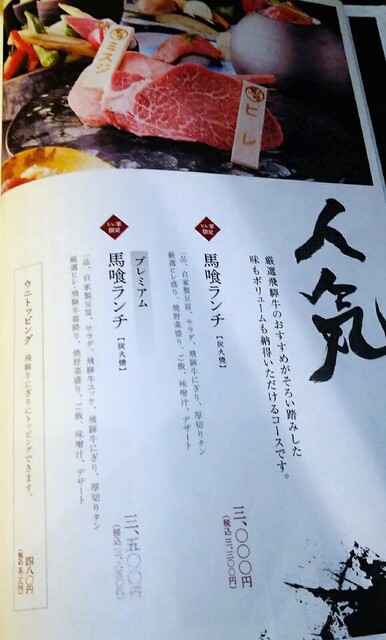 ミスジ
ヒレ
人気
厳選飛騨牛のおすすめがそろい踏みした
味もボリュームも納得いただけるコースです。
馬喰ランチ【炭火焼】
一品、自家製豆富、サラダ、飛騨牛にぎり、厚切りタン
厳選ヒレ盛り、焼野菜盛り、ご飯、味噌汁、デザート
三、〇〇〇円
(税込 三、三〇〇円)
プレミアム
馬喰ランチ【炭火焼】
一品、自家製豆富、サラダ、飛騨牛ユッケ、飛騨牛にぎり、厚切りタン
厳選ヒレ、飛騨牛霜降り、焼野菜盛り、ご飯、味噌汁、デザート
三、五〇〇円
(税込 三、八五〇円)
ウニトッピング
飛騨牛にぎりにトッピングできます。
四八〇円